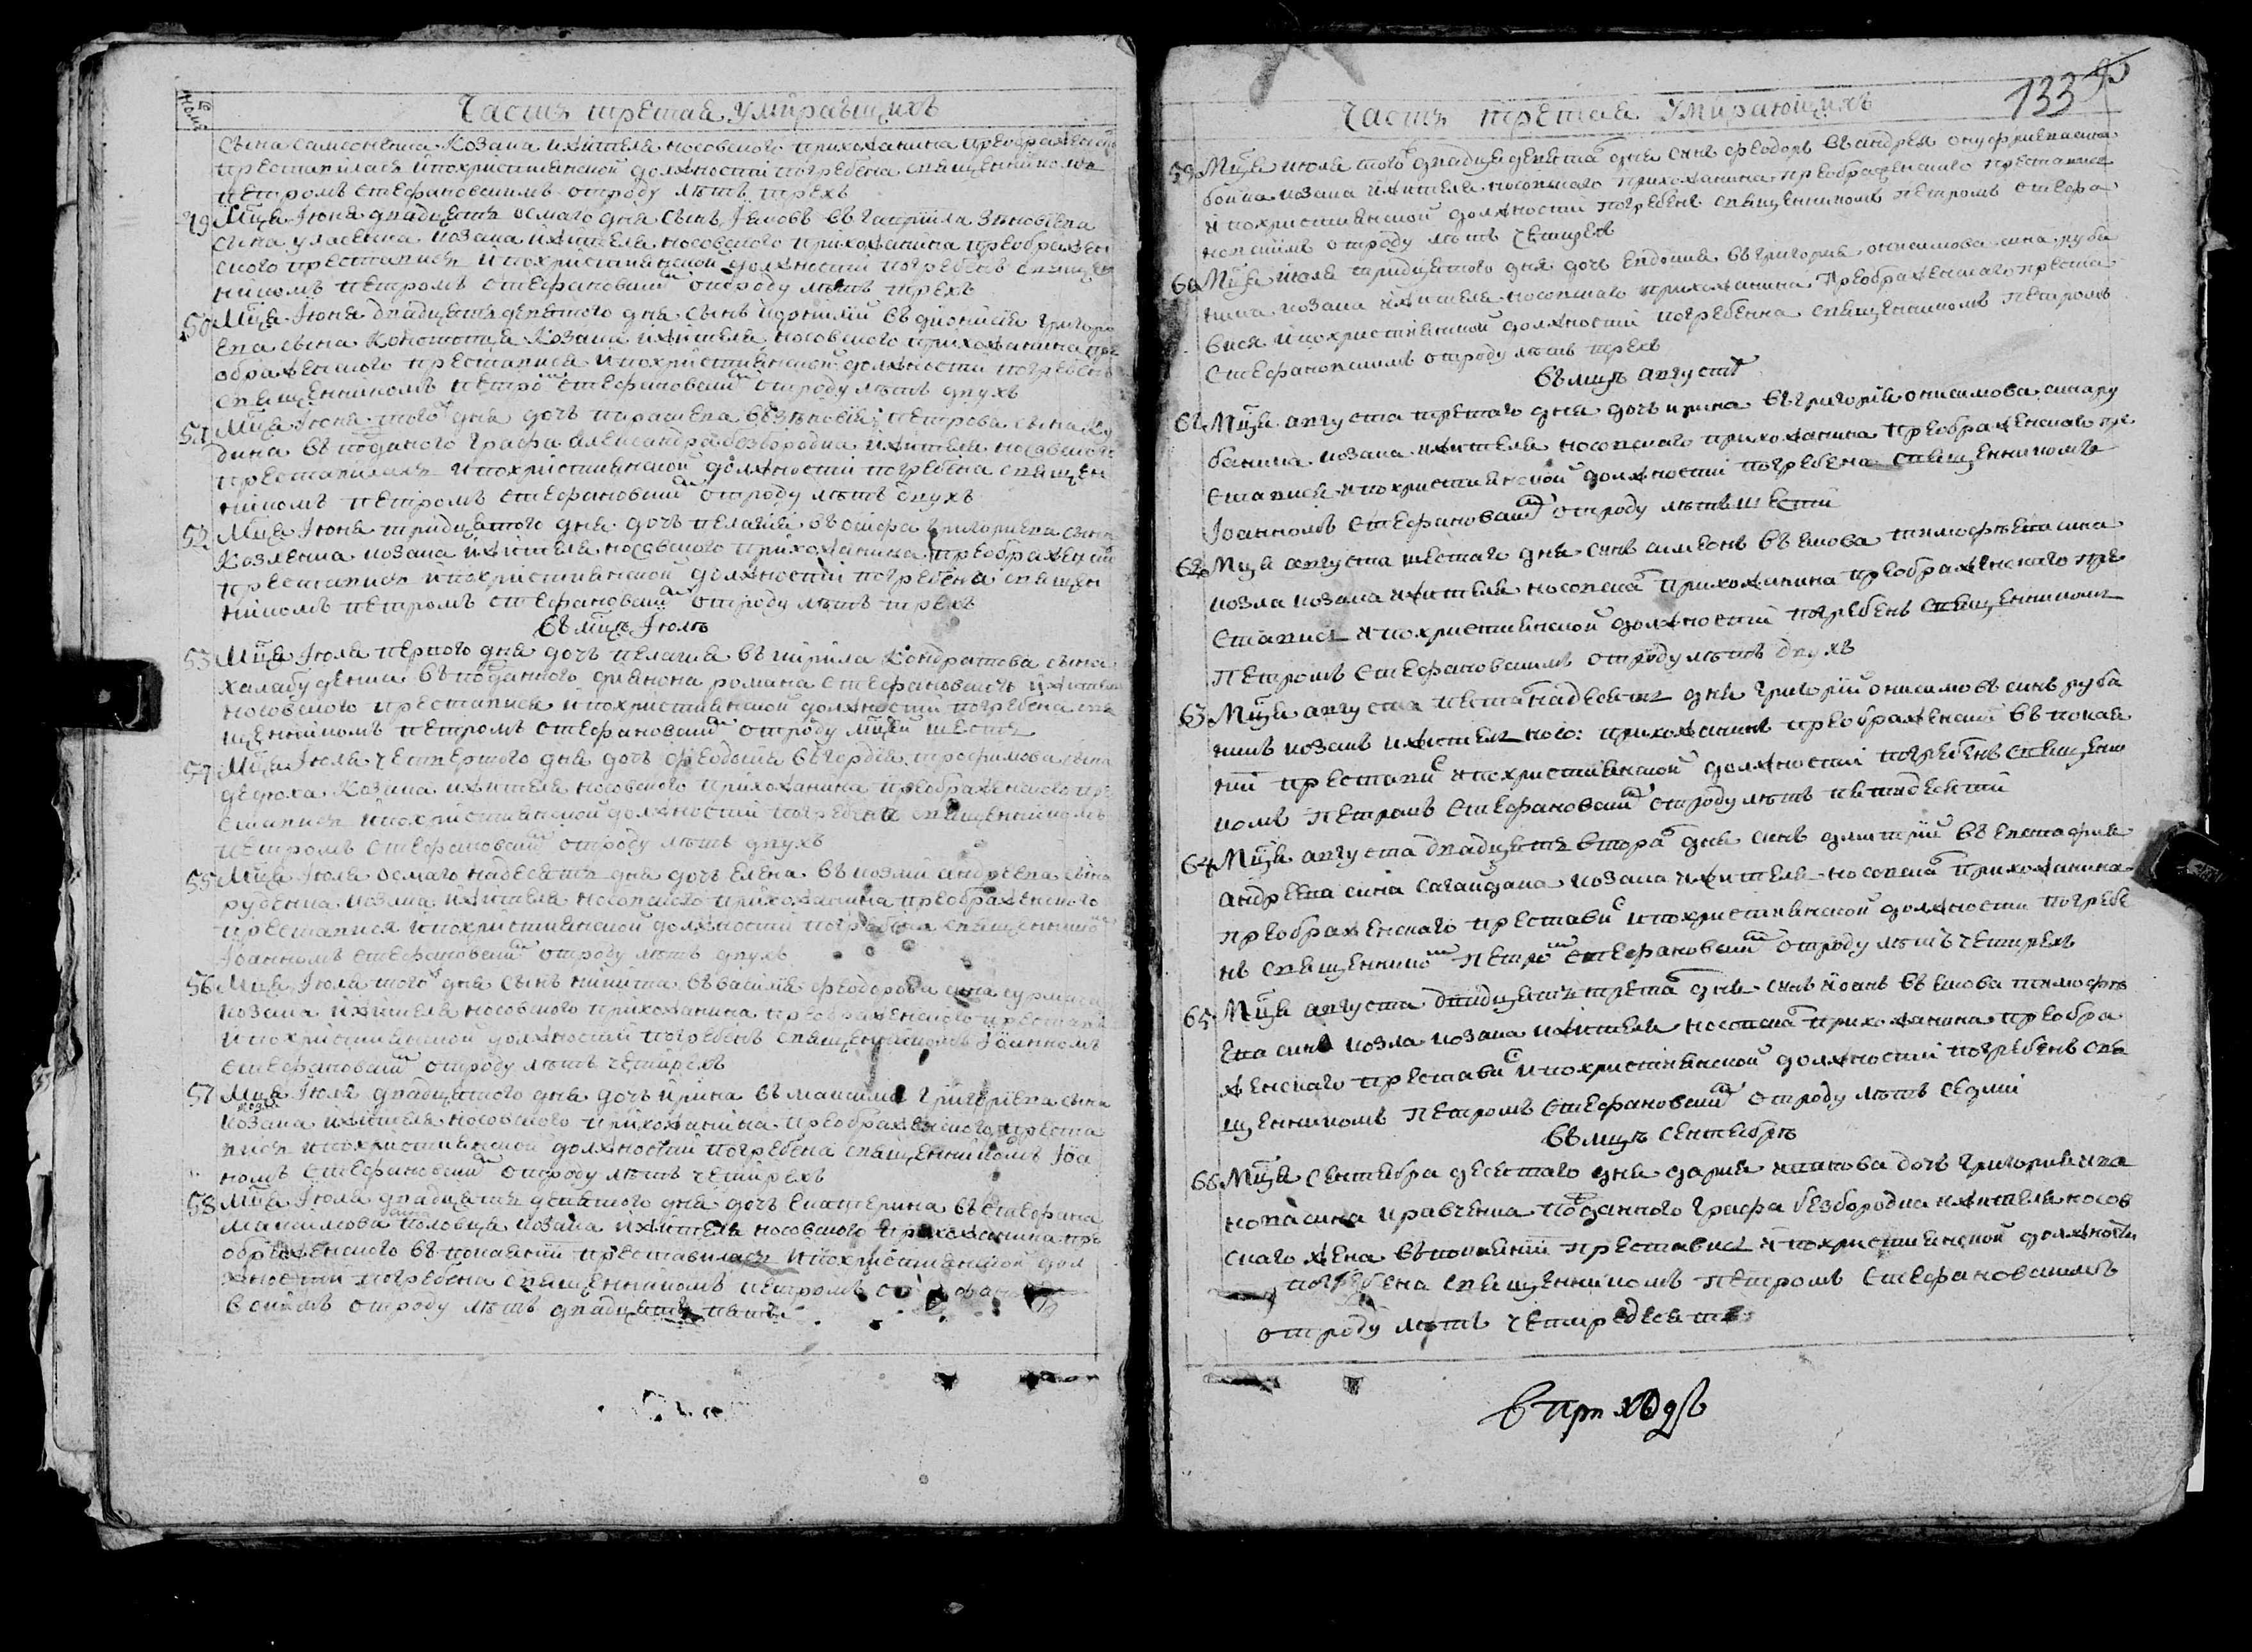 Часть третая Умираъщихъ
сына самсоненка козака и жителя носовского прихожанина преображенск
преставилася и по християнской должности погребена священникомъ
петромъ стефановскимъ отроду летъ трехъ
49 Мца Іюня двадцать осмаго дня сынъ Іяковъ въ гаврiила зѣновіева
сына козака и жителя носовского прихожанина преображен
ского преставися и по християнской должности погребенъ священ
никомъ петромъ стефановскимъ отроду летъ трехъ
50 Мца Іюня двадцать девятого дня сынъ корнилій въ дионисія григорі
ева сына козака и жителя носовского прихожанина пре
ображенского преставися и по християнской должности погребенъ
священникомъ петромъ стефановскимъ отроду летъ двухъ
51 Мца Іюня того дня дочъ параскева въ зѣновія петрова сына ку
дина въ подданого графа александра безбородка и жителя носовского
преставилась и по християнской должности погребена священ
никомъ петромъ стефановскимъ отроду летъ двухъ
52 Мца Іюня тридцатого дня дочъ пелагія въ іосифа григориева сына
козленка козака и жителя носовского прихожанина преображенск
преставися и по християнской должности погребена священ
никомъ петромъ стефановскимъ отроду летъ трехъ
въ мцѣ Іюлѣ
53 Мца Іюля первого дня дочъ пелагия въ кирила кондратова сына
халабуденка въ подданного диякона романа стефановского и жителя
носовского преставися и по християнской должности погребена свя
щенникомъ петромъ стефановскимъ отроду мцей шесть
54 Мца Іюля четвертого дня дочъ феодосія въ гордѣя трофимова сына
козака и жителя носовского прихожанина преображенского пре
ставися и по християнской должности погребена священникомъ
петромъ стефановскимъ отроду летъ двухъ
55 Мца Іюля осмаго надесять дня дочъ елена въ козми андреева сына
руденка козака и жителя носовского прихожанина преображенского
преставися и по християнской должности погребена священнико
Іоанномъ стефановскимъ отроду летъ двухъ
56 Мца Іюля того дня сынъ никита въ василія феодорова сина
козака и жителя носовского прихожанина преображенского престави
и по християнской должности погребенъ священникомъ Іоанномъ
стефановскимъ отроду летъ четирехъ
57 Мца Іюля двадцатого дня дочъ ирина въ максима григоріева сына
козака и жителя носовского прихожанина преображенского преста
вися и по християнской должности погребена священникомъ Іоа
номъ стефановскимъ отроду летъ четирехъ
58 Мца Іюля двадцать девятого дня дочъ екатерина въ стефана
максимова половца козака и жителя носовского прихожанина пре
ображенского въ покаяніи преставилась и по християнской дол
жности погребена священникомъ петромъ стефано
вскимъ отроду летъ двадцать пять
133
Часть третая Умирающихъ
59 Мца июля того двадця девята дня синъ феодоръ въ андрея онуфриева сина
бойка козака и жителя носовскаго прихожанина преображенского преставися
и по християнской должности погребенъ священникомъ петромъ стефа
новскимъ отроду летъ четирехъ
60 Мца июля тридцятого дня дочъ евдокия въ григория онисимова сина руба
ника козака и жителя носовскаго прихожанина Преображенскаго преста
вися и по християнской должности погребенна священникомъ петромъ
Стефановскимъ отроду летъ трехъ
въ мцѣ августѣ
61 Мца августа третаго дня дочъ ирина въ григорія онисимова сина ру
баника козака и жителя носовскаго прихожанина преображенскаго пре
ставися и по християнской должности погребена священникомъ
Іоанномъ Стефановскимъ отроду летъ шести
62 Мца августа шестаго дня синъ симеонъ въ якова тимофѣева сина
козла козака и жителя носовска прихожанина преображенскаго пре
ставися и по християнской должности погребенъ священникомъ
Петромъ Стефановскимъ отроду летъ двухъ
63 Мца августа пятанадесять дня григорій онисимовъ синъ руба
никъ козакъ и житель носо: прихожанинъ преображенскій въ покая
ніи престави и по християнской должности погребенъ священни
комъ Петромъ Стефановскимъ отроду летъ пятдесятій
64 Мца августа двадцять втора дня синъ димитрій въ евстафия
андреева сина сагайдака козака и жителя носовска прихожанина
преображенскаго престави и по християнской должности погребе
нъ священнико Петро Стефановскимъ отроду летъ четирехъ
65 Мца августа двадцять трета дня синъ иоанъ въ якова тимофѣ
ева сина козла козака и жителя носовска прихожанина преобра
женскаго престави и по християнской должности погребенъ свя
щенникомъ Петромъ Стефановскимъ отроду летъ седмій
въ мцѣ сентябрѣ
66 Мца сентября десятаго дня дария якимова дочъ григория ива
нова сина кравченка подданного графа безбородка и жителя носов
скаго жена въ покаяніи преставися и по християнской должности
погребена священникомъ Петромъ Стефановскимъ
отроду летъ четиредесять
в приходѣ